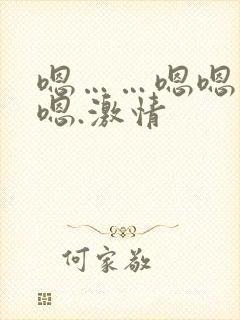 嗯……嗯嗯
嗯.激情
何家敬